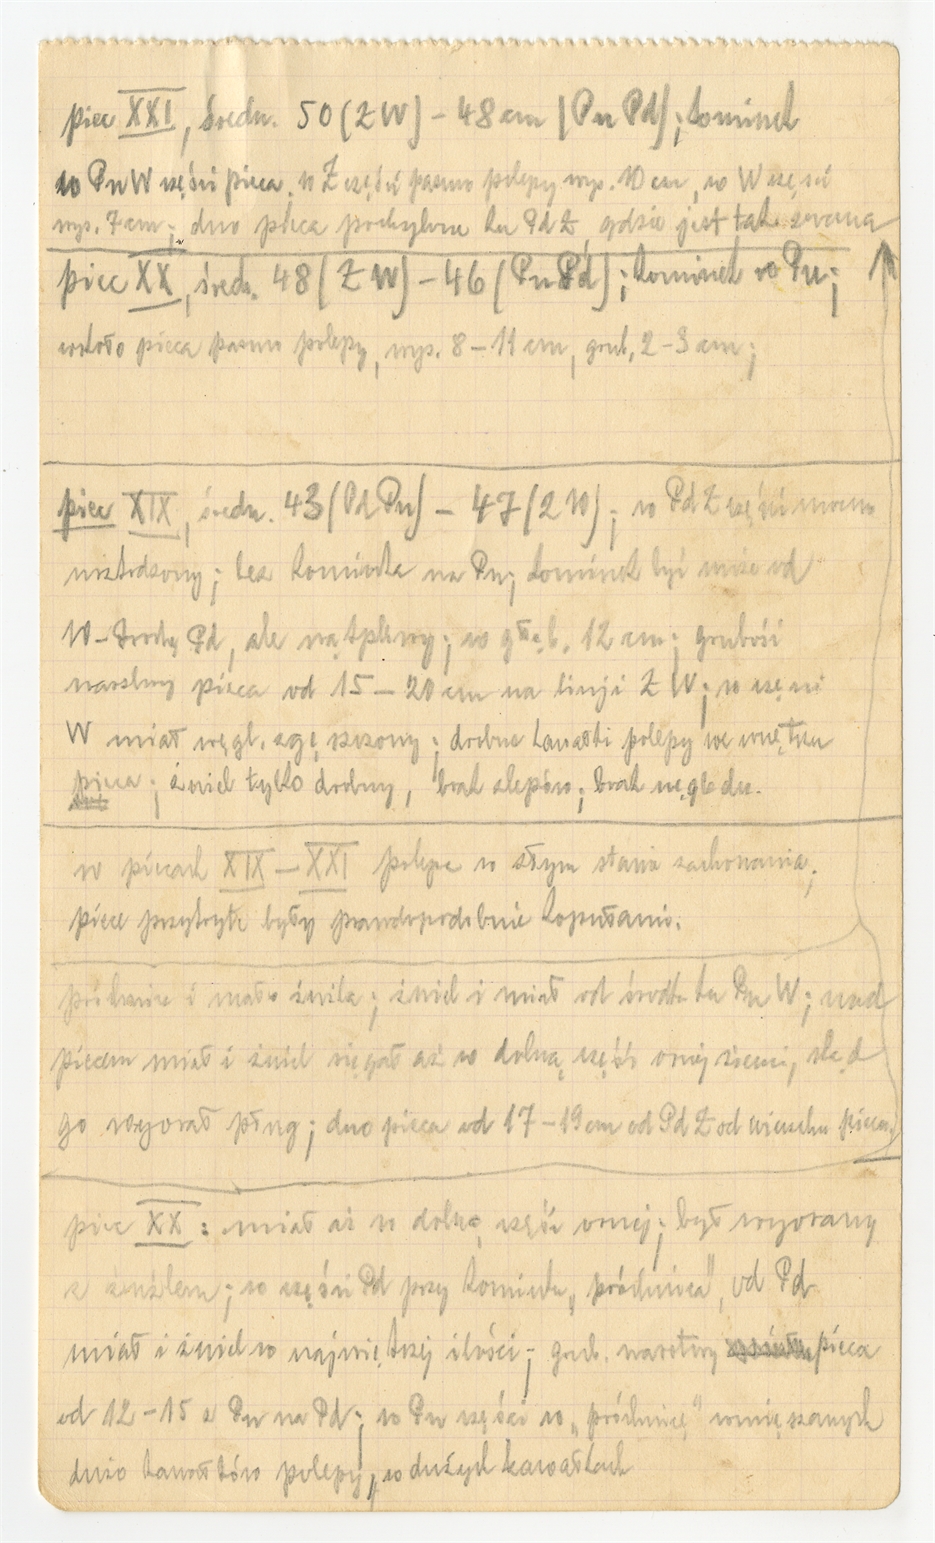 piec XXI, średn. 50 (Z W) – 48 cm (Pn Pd); kominek
w Pn W części pieca, w Z części pasmo polepy wys. 10 cm, w W części
wys. 7 cm; dno pieca pochylone ku Pd Z gdzie jest tak zwana
piec XX, średn. 48 (Z W) – 46 (Pn Pd); kominek w Pn;
wokoło pieca pasmo polepy, wys. 8 – 11 cm, grub. 2 – 3 cm;
piec XIX, średn. 43 (Pd Pn) – 47 (Z W); w Pd Z części mocno
uszkodzony; bez kominka na Pn; kominek być może od
W – trochę Pd, ale wątpliwy; w głęb. 12 cm; grubość
warstwy pieca od 15 – 20 cm na linji Z W; w części
W miał węgl. zgęszczony; drobne kawałki polepy we wnętrzu
pieca; żużel tylko drobny, brak zlepów; brak węgla drz.
w piecach XIX – XXI polepa w złym stanie zachowania;
piece przykryte były prawdopodobnie kopułami.
próchnica i mało żużla; żużel i miał od środka ku Pn W; nad
piecem miał i żużel sięgał aż w dolną część ornej ziemi, skąd
go wyorał pług; dno pieca od 17 – 19 cm od Pd Z od wierzchu pieca;
piec XX: miał aż w dolną część ornej; był wyorany
z żużlem; w części Pd przy kominku „próchnica", od Pd
miał i żużel w największej ilości; grub. warstwy pieca
od 12 – 15 z Pn na Pd; w Pn części w „próchnicę" wmięszanych
dużo kawałków polepy, w dużych kawałkach